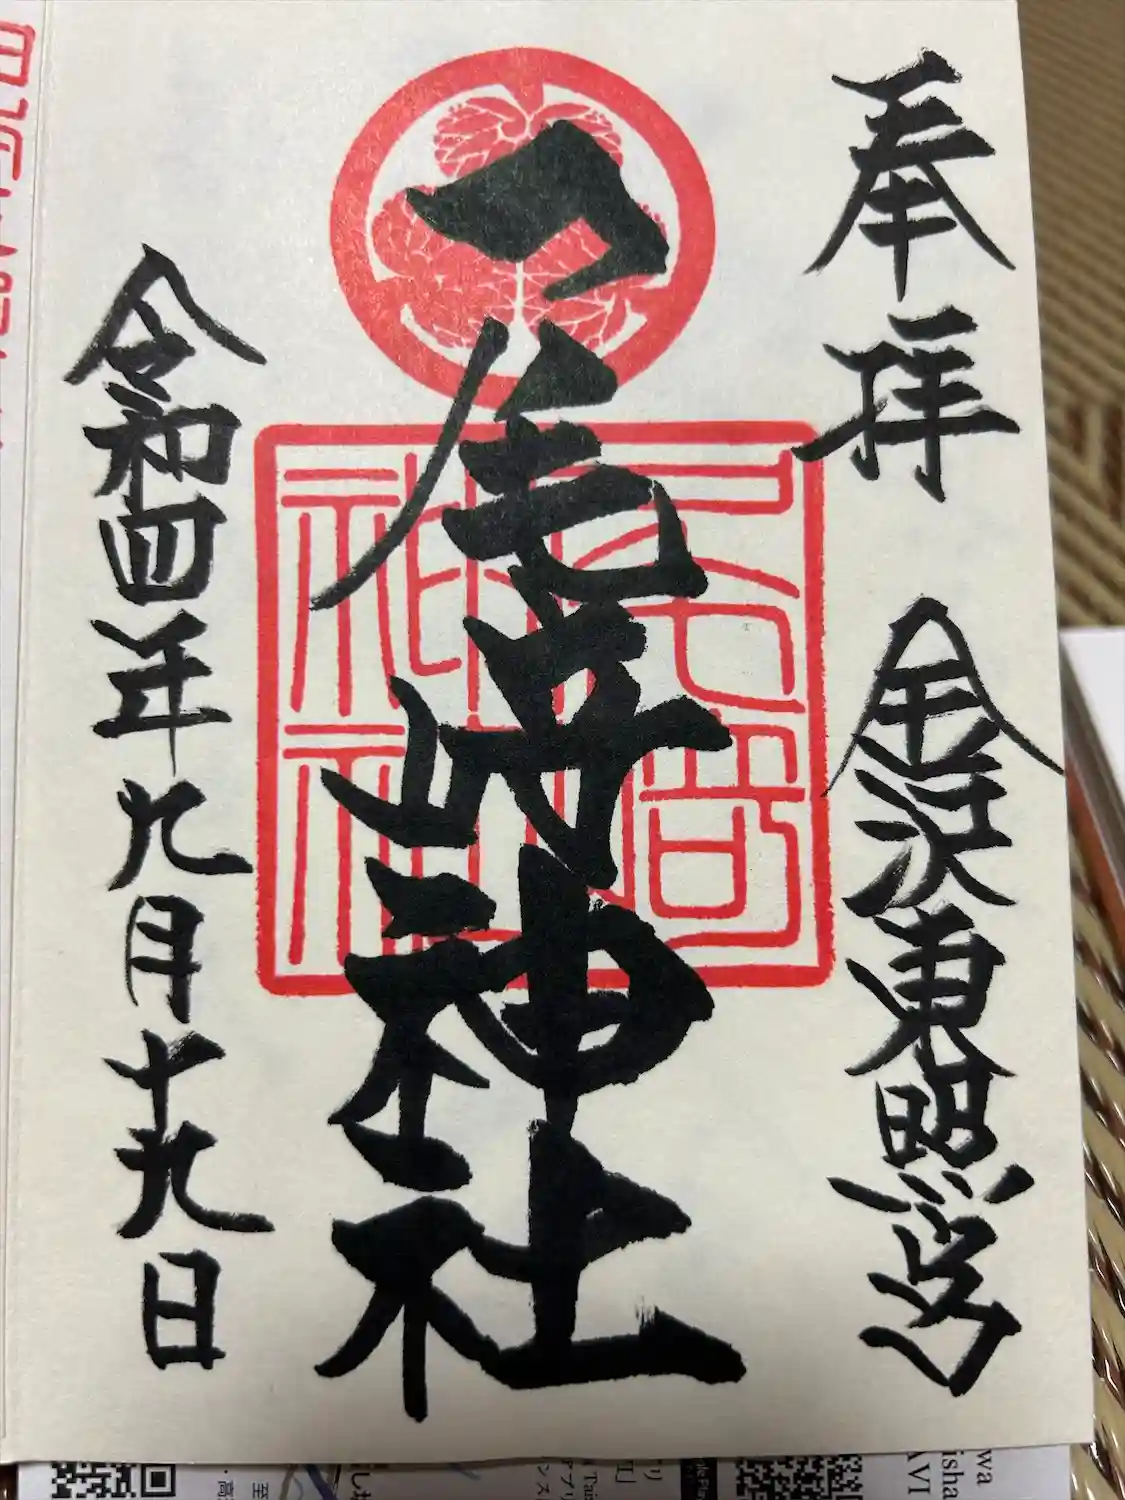 奉拝 金沢東照宮
尾崎神社
尾崎神社
令和四年九月十九日